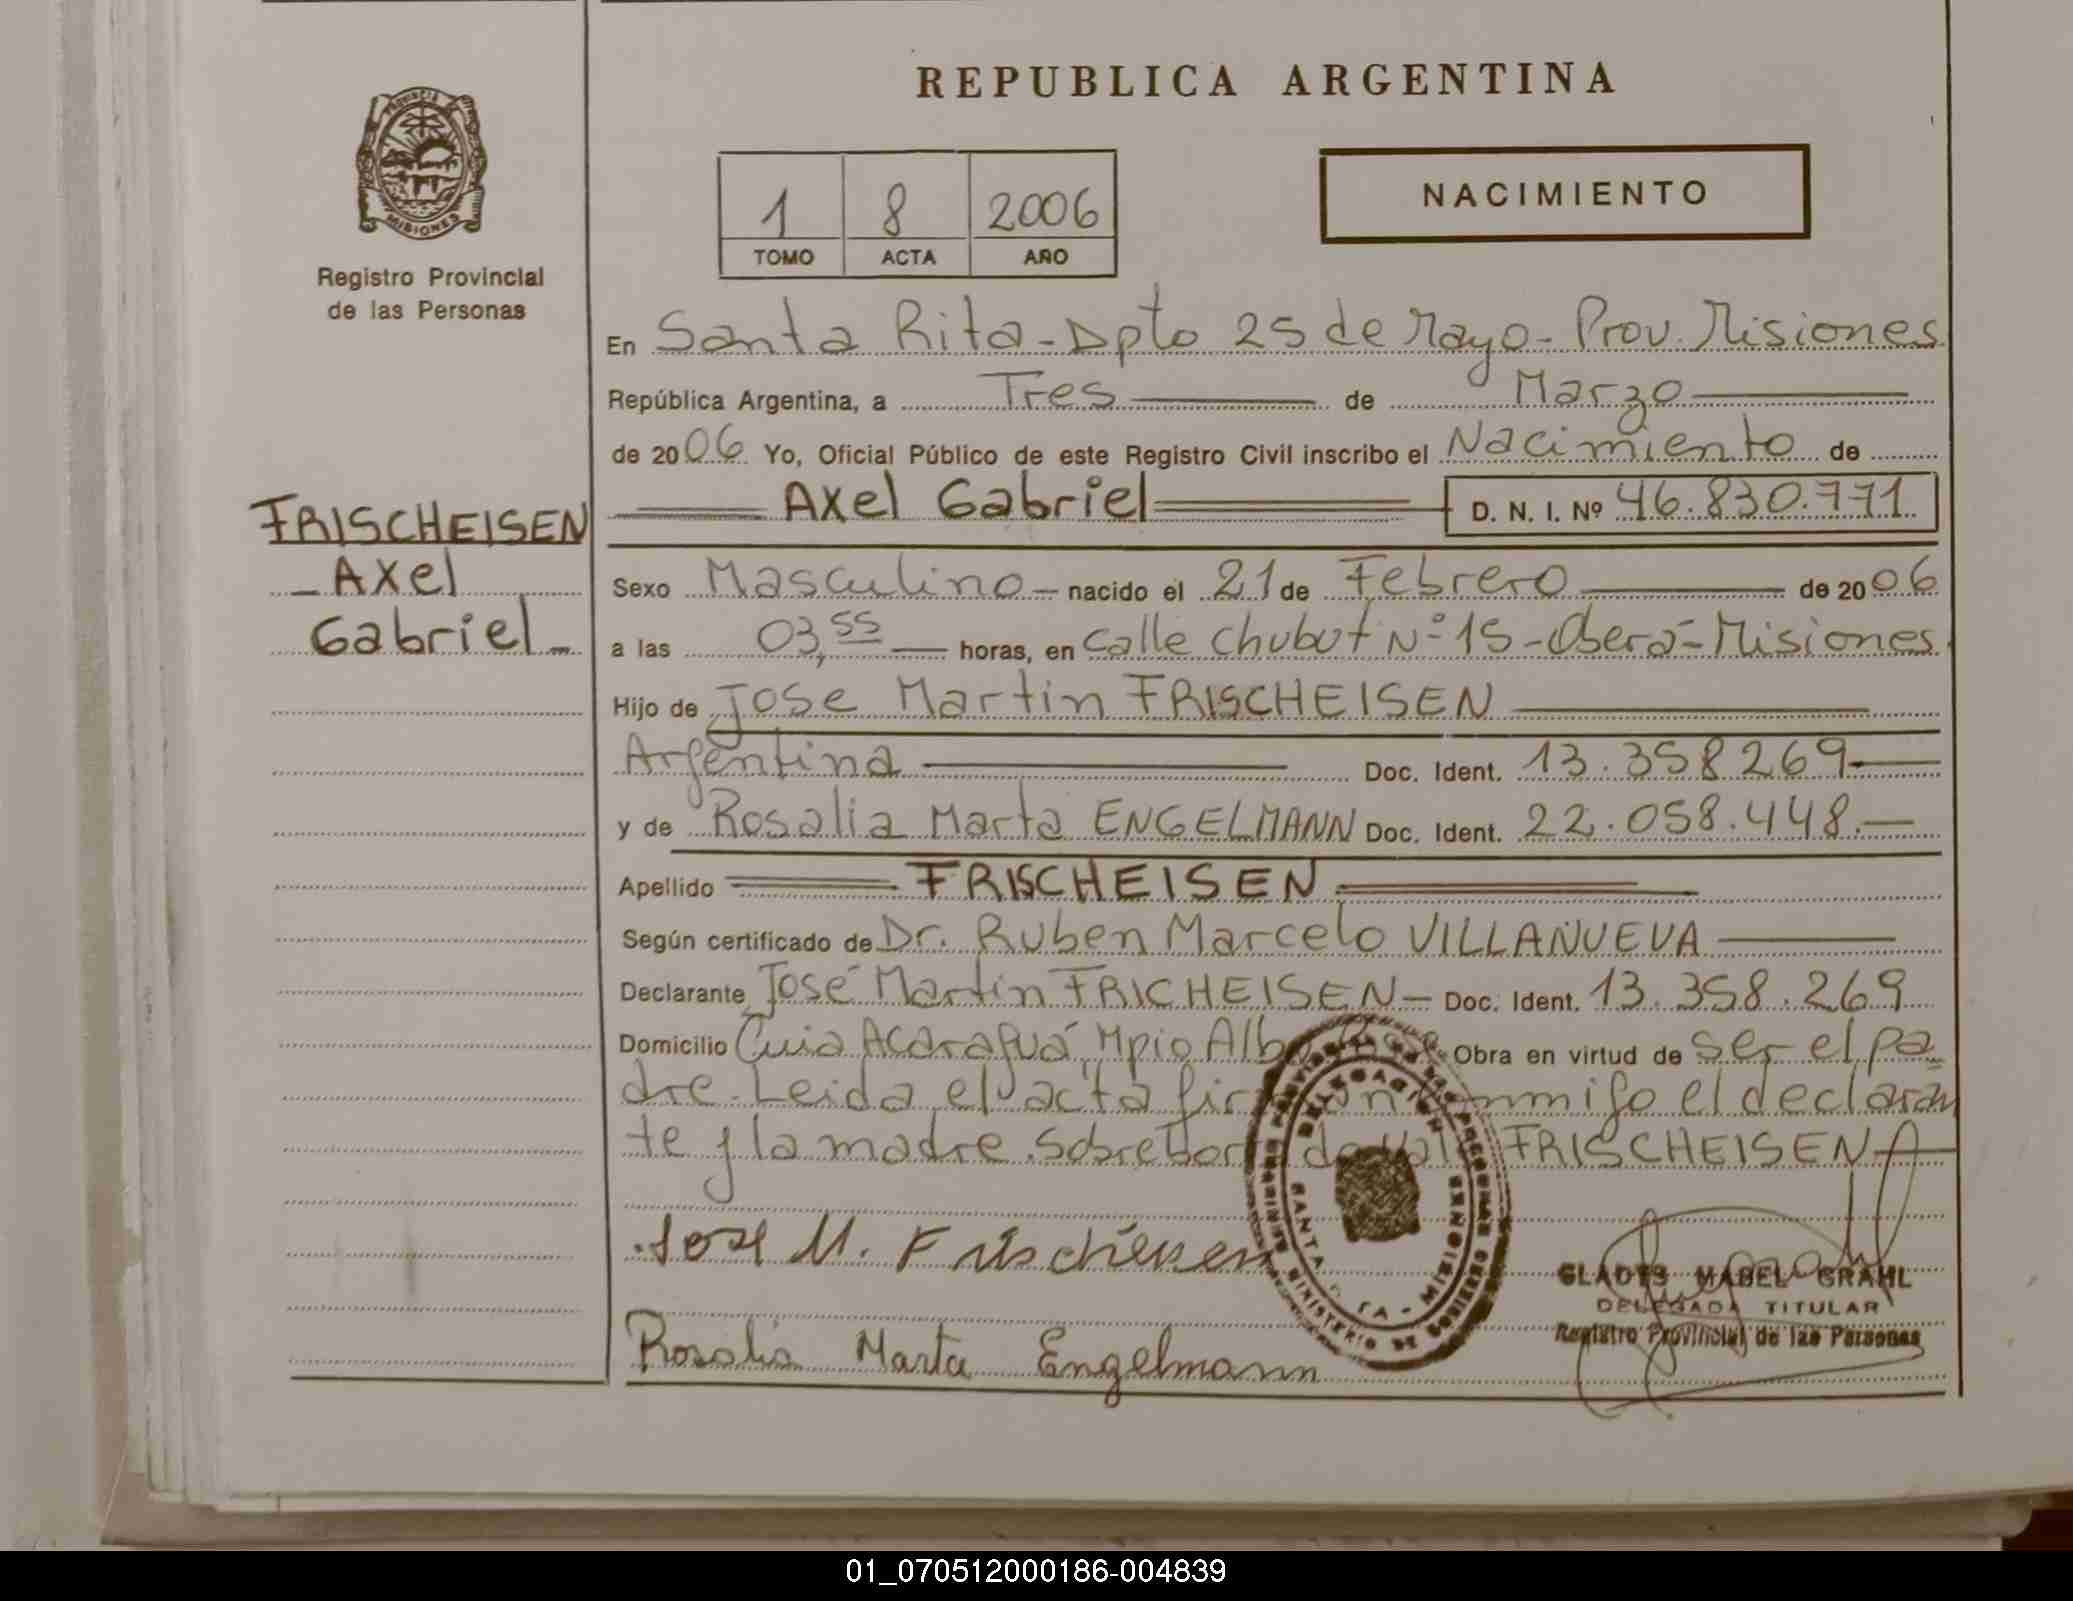 REPUBLICA ARGENTINA
PROVINCIA DE
MISIONES
Registro Provincial
de las Personas
1 8 2006
TOMO ACTA AÑO
NACIMIENTO
En Santa Rita - Dpto 25 de Mayo - Prov. Misiones
República Argentina, a Tres de Marzo
de 2006 Yo, Oficial Público de este Registro Civil inscribo el Nacimiento de
Axel Gabriel D. N. I. Nº 46.830.771
FRISCHEISEN
- Axel
Gabriel -
Sexo Masculino - nacido el 21 de Febrero de 2006
a las 03,55 horas, en Calle Chubut Nº 15 - Oberá - Misiones
Hijo de Jose Martin FRISCHEISEN
Argentina Doc. Ident. 13.358.269
y de Rosalia Marta ENGELMANN Doc. Ident. 22.058.448.
Apellido FRISCHEISEN
Según certificado de Dr. Ruben Marcelo VILLANUEVA
Declarante José Martin FRICHEISEN - Doc. Ident. 13.358.269
Domicilio Acaraguá, Mpio Alba Obra en virtud de ser el pa
dre. Leida el acta conmigo el declaran
te y la madre. FRISCHEISEN
Jose M. Frischeisen
Rosalia Marta Engelmann
DELEGACION
SANTA RITA - MISIONES
MINISTERIO DE GOBIERNO
GLADYS MABEL GRAHL
DELEGADA TITULAR
Registro Provincial de las Personas
01_070512000186-004839